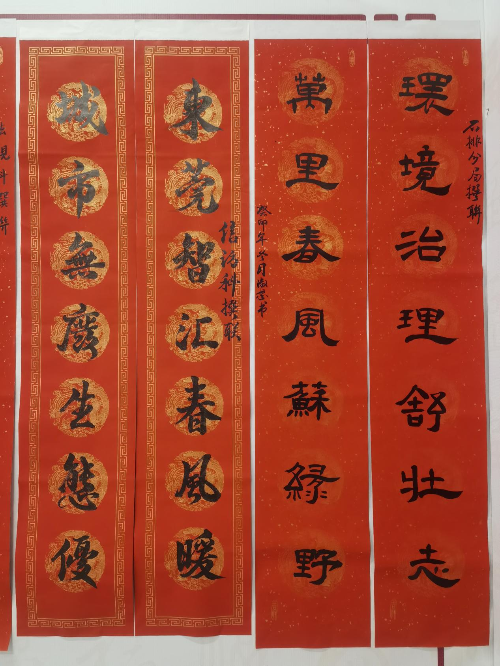 石排分局撰联
環境治理舒壯志
萬里春風蘇緑野
癸卯年冬月
信访科撰联
東莞智汇春風暖
城市無廢生態優